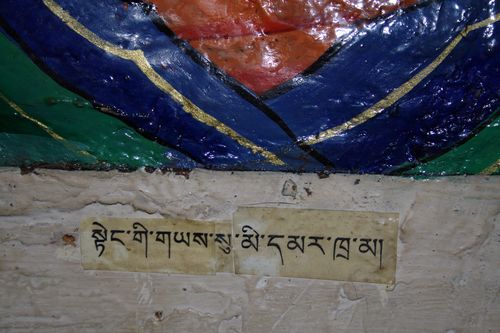 སྟེང་གི་གཡས་སུ་མི་དམར་ཁྲ་མ།